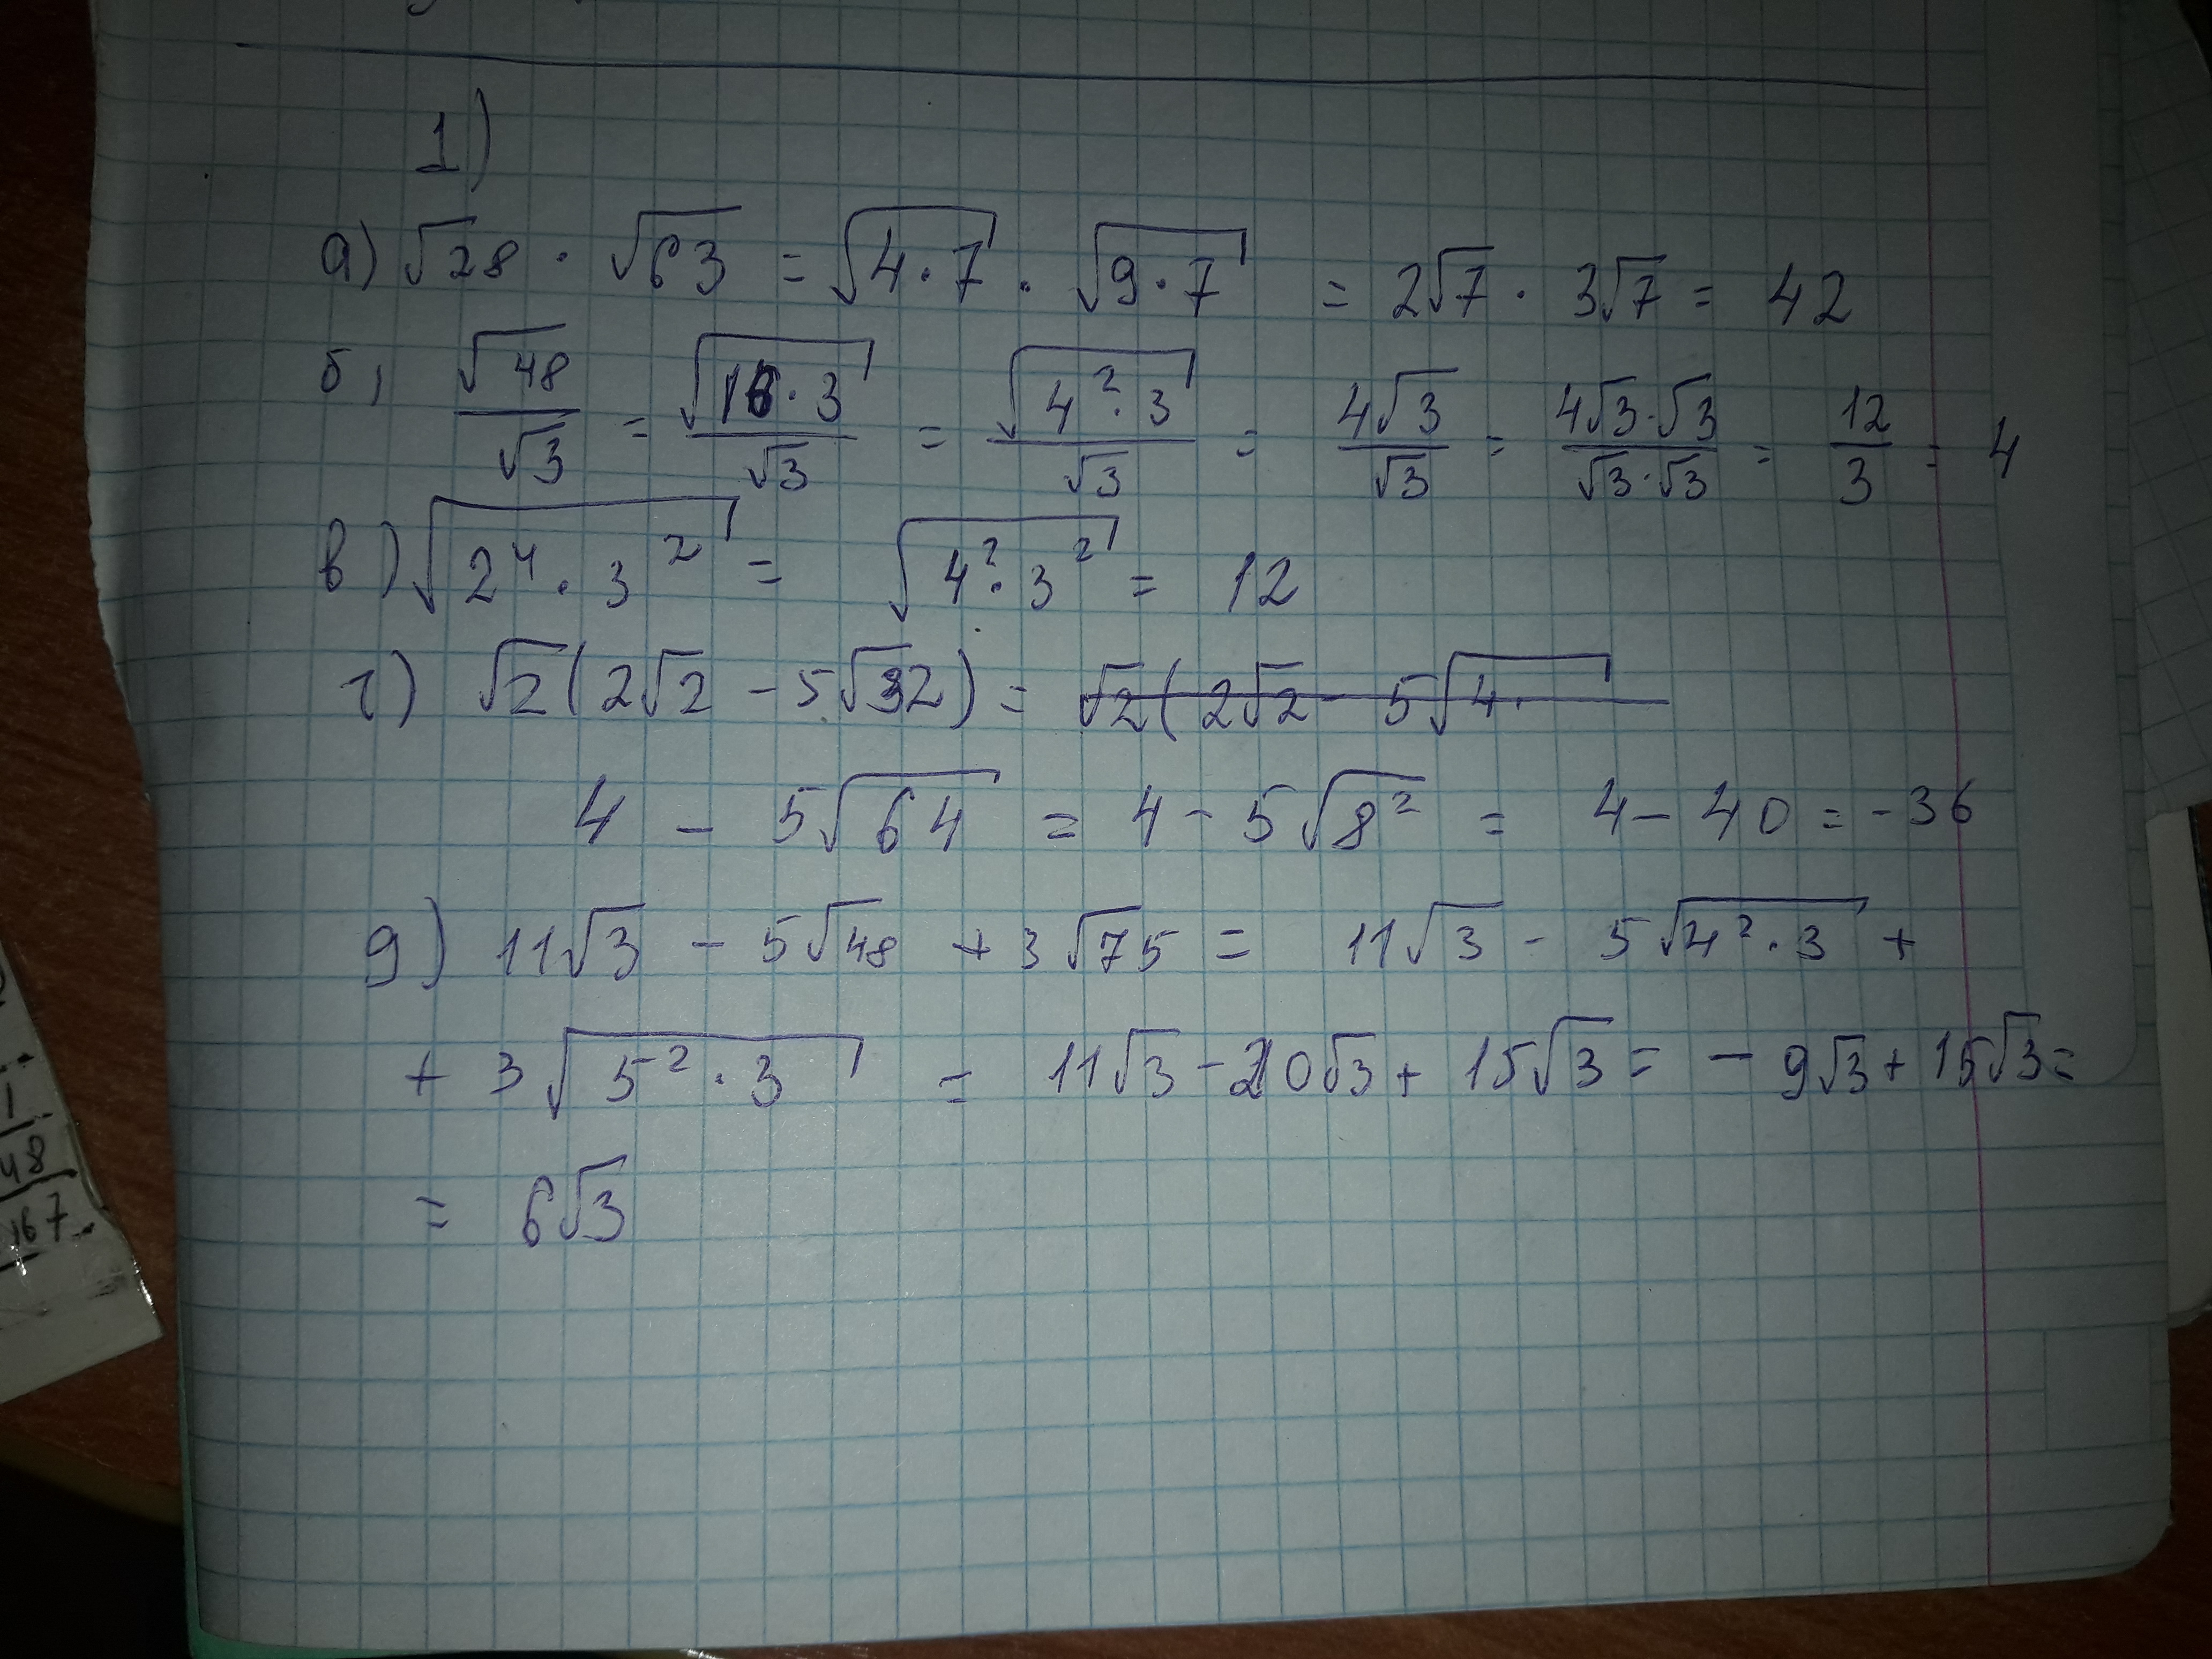 1)
а) √28 · √63 = √4·7 · √9·7 = 2√7 · 3√7 = 42
б) √48/√3 = √16·3/√3 = √4²·3/√3 = 4√3/√3 = 4√3·√3/√3·√3 = 12/3 = 4
в) √2⁴·3² = √4²·3² = 12
г) √2(2√2 - 5√32) = √2(2√2 - 5√4·
4 - 5√64 = 4 - 5√8² = 4 - 40 = -36
д) 11√3 - 5√48 + 3√75 = 11√3 - 5√4²·3 +
+ 3√5²·3 = 11√3 - 20√3 + 15√3 = - 9√3 + 15√3 =
= 6√3
1
48
167